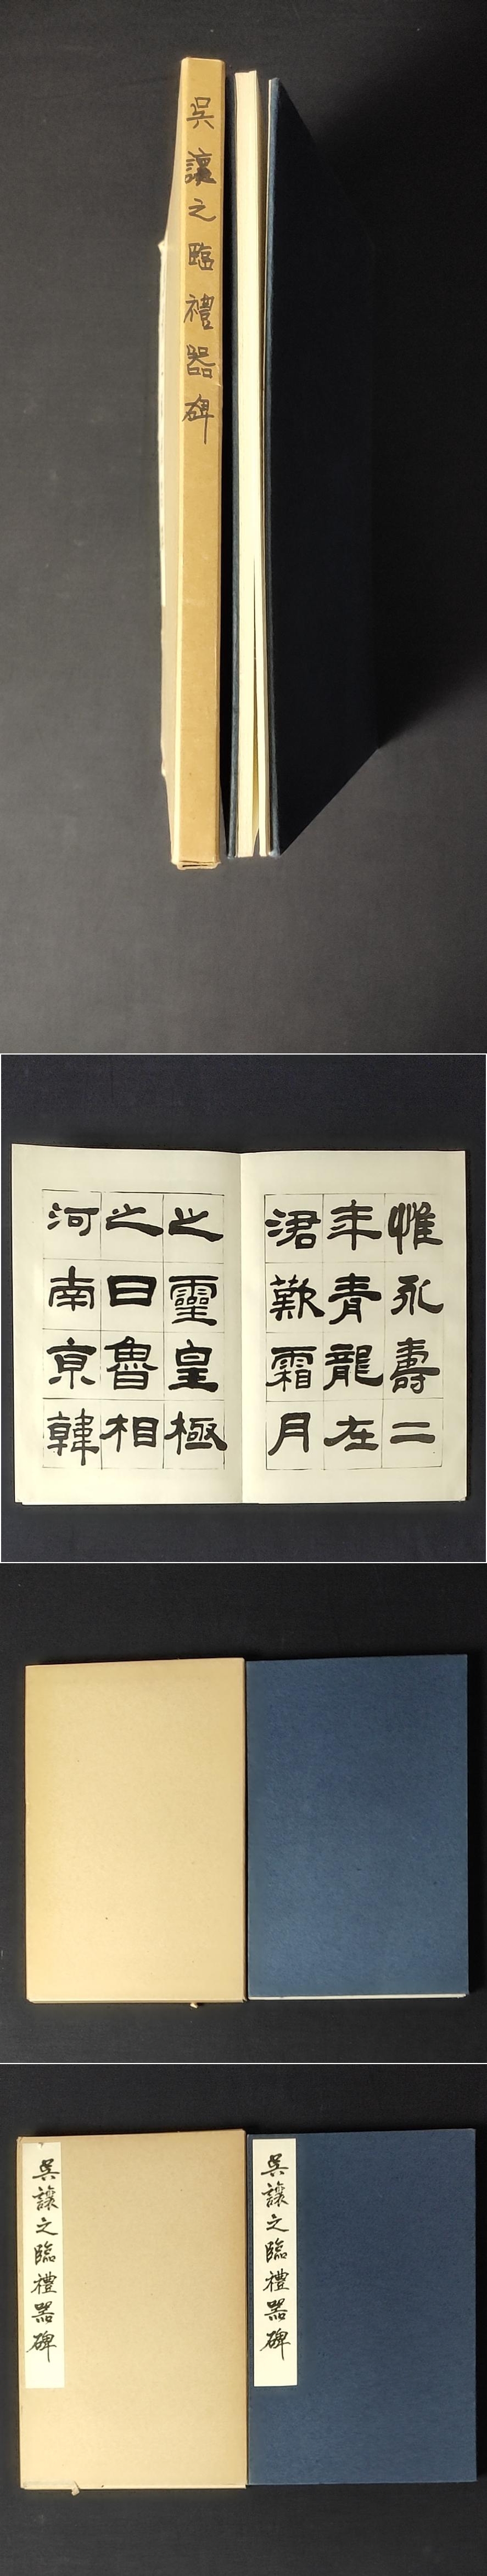 吳讓之臨禮器碑
惟永壽二
年青龍在
涒歎霜月
之靈皇極
之日魯相
河南京韓
吳讓之臨禮器碑
吳讓之臨禮器碑